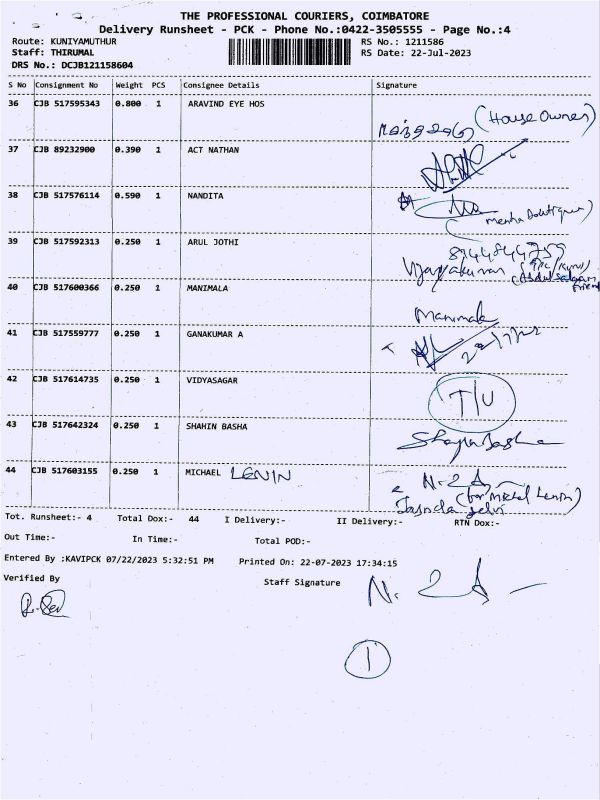 THE PROFESSIONAL COURIERS, COIMBATORE
Delivery Runsheet - PCK - Phone No.:0422-3505555 - Page No.:4
Route: KUNIYAMUTHUR RS No.: 1211586
Staff: THIRUMAL RS Date: 22-Jul-2023
DRS No.: DCJB121158604
S No Consignment No Weight PCS Consignee Details Signature
36 CJB 517595343 0.800 1 ARAVIND EYE HOS
(House Owner)
37 CJB 89232900 0.390 1 ACT NATHAN
38 CJB 517576114 0.590 1 NANDITA
39 CJB 517592313 0.250 1 ARUL JOTHI
Vijayakumar
friend
40 CJB 517600366 0.250 1 MANIMALA
Manimala
41 CJB 517559777 0.250 1 GANAKUMAR A
42 CJB 517614735 0.250 1 VIDYASAGAR
T/U
43 CJB 517642324 0.250 1 SHAHIN BASHA
44 CJB 517603155 0.250 1 MICHAEL LENIN
Tot. Runsheet:- 4 Total Dox:- 44 I Delivery:- II Delivery:- RTN Dox:-
Out Time:- In Time:- Total POD:-
Entered By :KAVIPCK 07/22/2023 5:32:51 PM Printed On: 22-07-2023 17:34:15
Verified By Staff Signature
1